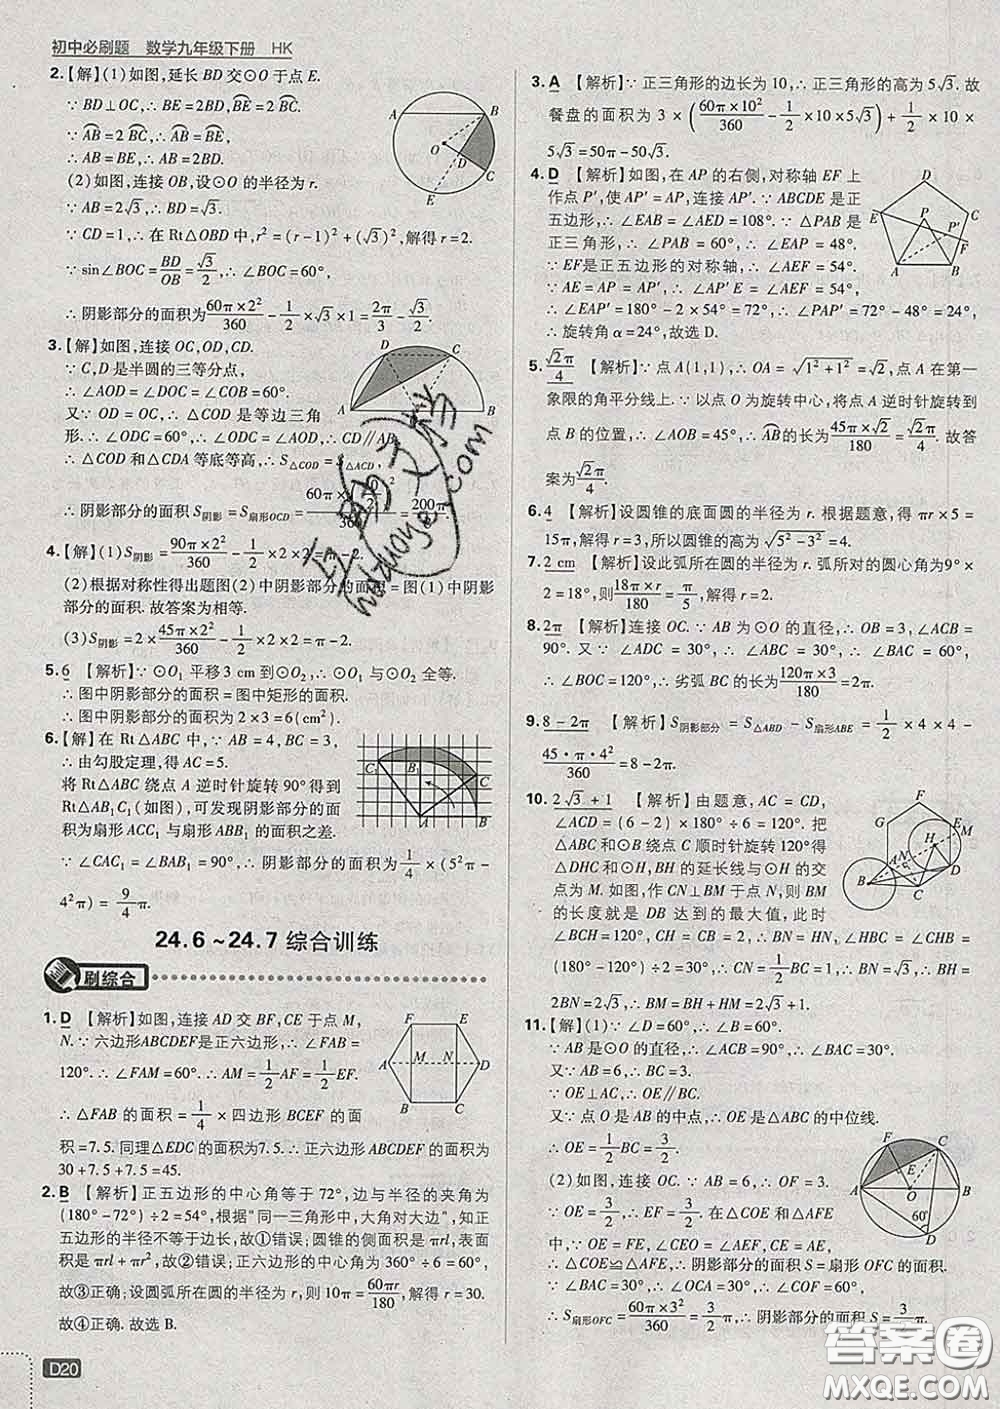 初中必刷题 数学九年级下册 HK
2.【解】(1)如图,延长BD交⊙O于点E.
∵ BD⊥OC,∴ BE=2BD,BE=2BC.
∵ AB=2BC,∴ AB=BE,
∴ AB=BE,∴ AB=2BD.
(2)如图,连接OB,设⊙O的半径为r.
∵ AB=2√3,∴ BD=√3.
∵ CD=1,∴ 在Rt△OBD中,r²=(r-1)²+(√3)²,解得r=2.
∵ sin∠BOC=BD/OB=√3/2,∴ ∠BOC=60°,
∴ 阴影部分的面积为60π×2²/360-1/2×√3×1=2π/3-√3/2.
3.【解】如图,连接OC,OD,CD.
∵ C,D是半圆的三等分点,
∴ ∠AOD=∠DOC=∠COB=60°.
又∵ OD=OC,∴ △COD是等边三角
形.∴ ∠ODC=60°,∴ ∠ODC=∠AOD,∴ CD∥AB,
∴ △COD和△CDA等底等高,∴ S△COD=S△ACD,
∴ 阴影部分的面积S阴影=S扇形OCD=
4.【解】(1)S阴影=90π×2²/360-1/2×2×2=π-2.
(2)根据对称性得出题图(2)中阴影部分的面积=图(1)中阴影
部分的面积.故答案为相等.
(3)S阴影=2×45π×2²/360-1/2×2×2=π-2.
5. 6 【解析】∵ ⊙O₁平移3 cm到⊙O₂,∴ ⊙O₁与⊙O₂全等.
∴ 图中阴影部分的面积=图中矩形的面积.
∴ 图中阴影部分的面积为2×3=6(cm²).
6.【解】在Rt△ABC中,∵ AB=4,BC=3,
∴ 由勾股定理,得AC=5.
将Rt△ABC绕点A逆时针旋转90°得到
Rt△AB₁C₁(如图),可发现阴影部分的面
积为扇形ACC₁与扇形ABB₁的面积之差.
∵ ∠CAC₁=∠BAB₁=90°,∴ 阴影部分的面积为1/4×(5²π-
4²π)=9/4π.
24.6~24.7综合训练
刷综合
1. D 【解析】如图,连接AD交BF,CE于点M,
N.∵ 六边形ABCDEF是正六边形,∴ ∠FAB=
120°.∴ ∠FAM=60°.∴ AM=1/2AF=1/2EF.
∴ △FAB的面积=1/4×四边形BCEF的面
积=7.5.同理△EDC的面积为7.5.∴ 正六边形ABCDEF的面积=
30+7.5+7.5=45.
2. B 【解析】正五边形的中心角等于72°,边与半径的夹角为
(180°-72°)÷2=54°,根据"同一三角形中,大角对大边",知正
五边形的半径不等于边长;故①错误;圆锥的侧面积是πrl,表面
积是πrl+πr²,故②错误;正六边形的中心角等于360°÷6=60°,
故③正确;设圆弧所在的圆的半径是r,则10π=60πr/180,解得r=30.
故④正确.故选B.
D20
3. A 【解析】∵ 正三角形的边长为10,∴ 正三角形的高为5√3.故
餐盘的面积为3×(60π×10²/360-1/2×10×5√3)+1/2×10×
5√3=50π-50√3.
4. D 【解析】如图,在AP的右侧,对称轴EF上
作点P′,使AP′=AP,连接AP′.∵ ABCDE是正
五边形,∴ ∠EAB=∠AED=108°.∵ △PAB是
正三角形,∴ ∠PAB=60°,∴ ∠EAP=48°.
∵ EF是正五边形的对称轴,∴ ∠AEF=54°.
∵ AE=AP=AP′,∴ ∠AP′E=∠AEF=54°,
∴ ∠EAP′=180°-2×54°=72°,∴ ∠PAP′=72°-48°=24°,
∴ 旋转角α=24°,故选D.
5. √2π/4 【解析】∵ 点A(1,1),∴ OA=√(1²+1²)=√2,点A在第一
象限的角平分线上.∵ 以点O为旋转中心,将点A逆时针旋转到
点B的位置,∴ ∠AOB=45°,∴ AB的长为45π×√2/180=√2π/4.故答
案为√2π/4.
6. 4 【解析】设圆锥的底面圆的半径为r.根据题意,得πr×5=
15π,解得r=3,所以圆锥的高为√(5²-3²)=4.
7. 2 cm 【解析】设此弧所在圆的半径为r.此弧所对的圆心角为9°×
2=18°,则18π×r/180=π/5,解得r=2.
8. 2π 【解析】连接OC.∵ AB为⊙O的直径,∴ OB=3,∠ACB=
90°.又∵ ∠ADC=30°,∴ ∠ABC=∠ADC=30°,∴ ∠BAC=60°,
∴ ∠BOC=120°,∴ 劣弧BC的长为120π×3/180=2π.
9. 8-2π 【解析】S阴影部分=S△ABD-S扇形ABE=1/2×4×4-
45·π·4²/360=8-2π.
10. 2√3+1 【解析】由题意,AC=CD,
∠ACD=(6-2)×180°÷6=120°.把
△ABC和⊙B绕点C顺时针旋转120°得
△DHC和⊙H,BH的延长线与⊙H的交
点为M.如图,作CN⊥BM于点N,则BM
的长度就是DB达到的最大值,此时
∠BCH=120°,∴ BN=HN,∠CBH=
(180°-120°)÷2=30°,∴ CN=1/2BC=1,BN=√3,∴ BH=
2BN=2√3,∴ BM=BH+MH=2√3+1.
11.【解】(1)∵ ∠D=60°,∴ ∠B=60°.
∵ AB是⊙O的直径,∴ ∠ACB=90°,∴ ∠BAC=30°.
又∵ AB=6,∴ BC=3.
∵ OE⊥AC,∴ OE∥BC.
又∵ 点O是AB的中点,∴ OE是△ABC的中位线.
∴ OE=1/2BC=3/2.
(2)如图,连接OC.∵ AB=6,∴ OF=3.∵ OE=
3/2,∴ EF=3/2=OE.在△COE和△AFE
中,∵ OE=FE,∠CEO=∠AEF,CE=AE,
∴ △COE≌△AFE,∴ 阴影部分的面积S=扇形OFC的面积.
∵ ∠BAC=30°,∴ ∠OCA=30°,∴ ∠COE=60°,
∴ S扇形OFC=60π×3²/360=3/2π,∴ 阴影部分的面积S=3/2π.
答案圈
MXQE.COM